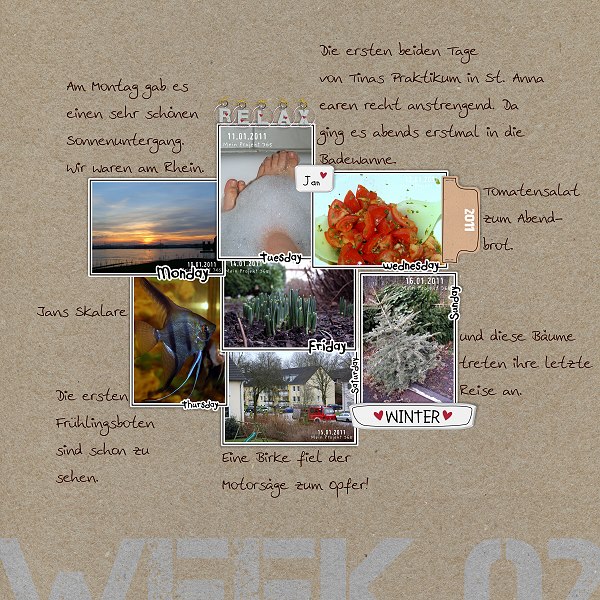 Die ersten beiden Tage
von Tinas Praktikum in St. Anna
earen recht anstrengend. Da
ging es abends erstmal in die
Badewanne.
Am Montag gab es
einen sehr schönen
Sonnenuntergang.
Wir waren am Rhein.
RELAX
11.01.2011
Mein Projekt 365
Jan
2011
Tomatensalat
zum Abend-
brot.
Monday
tuesday
wednesday
14.01.2011
Mein Projekt 365
16.01.2011
Mein Projekt 365
Sunday
Jans Skalare
Friday
thursday
Saturday
und diese Bäume
treten ihre letzte
Reise an.
WINTER
Die ersten
Frühlingsboten
sind schon zu
sehen.
15.01.2011
Mein Projekt 365
Eine Birke fiel der
Motorsäge zum Opfer!
WEEK 02